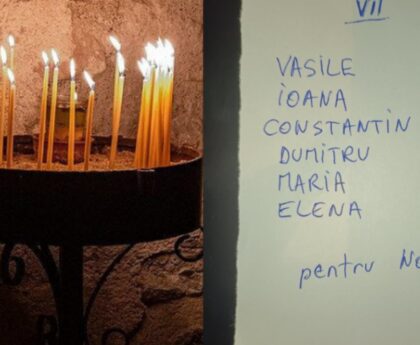 VII
VASILE
IOANA
CONSTANTIN
DUMITRU
MARIA
ELENA
pentru